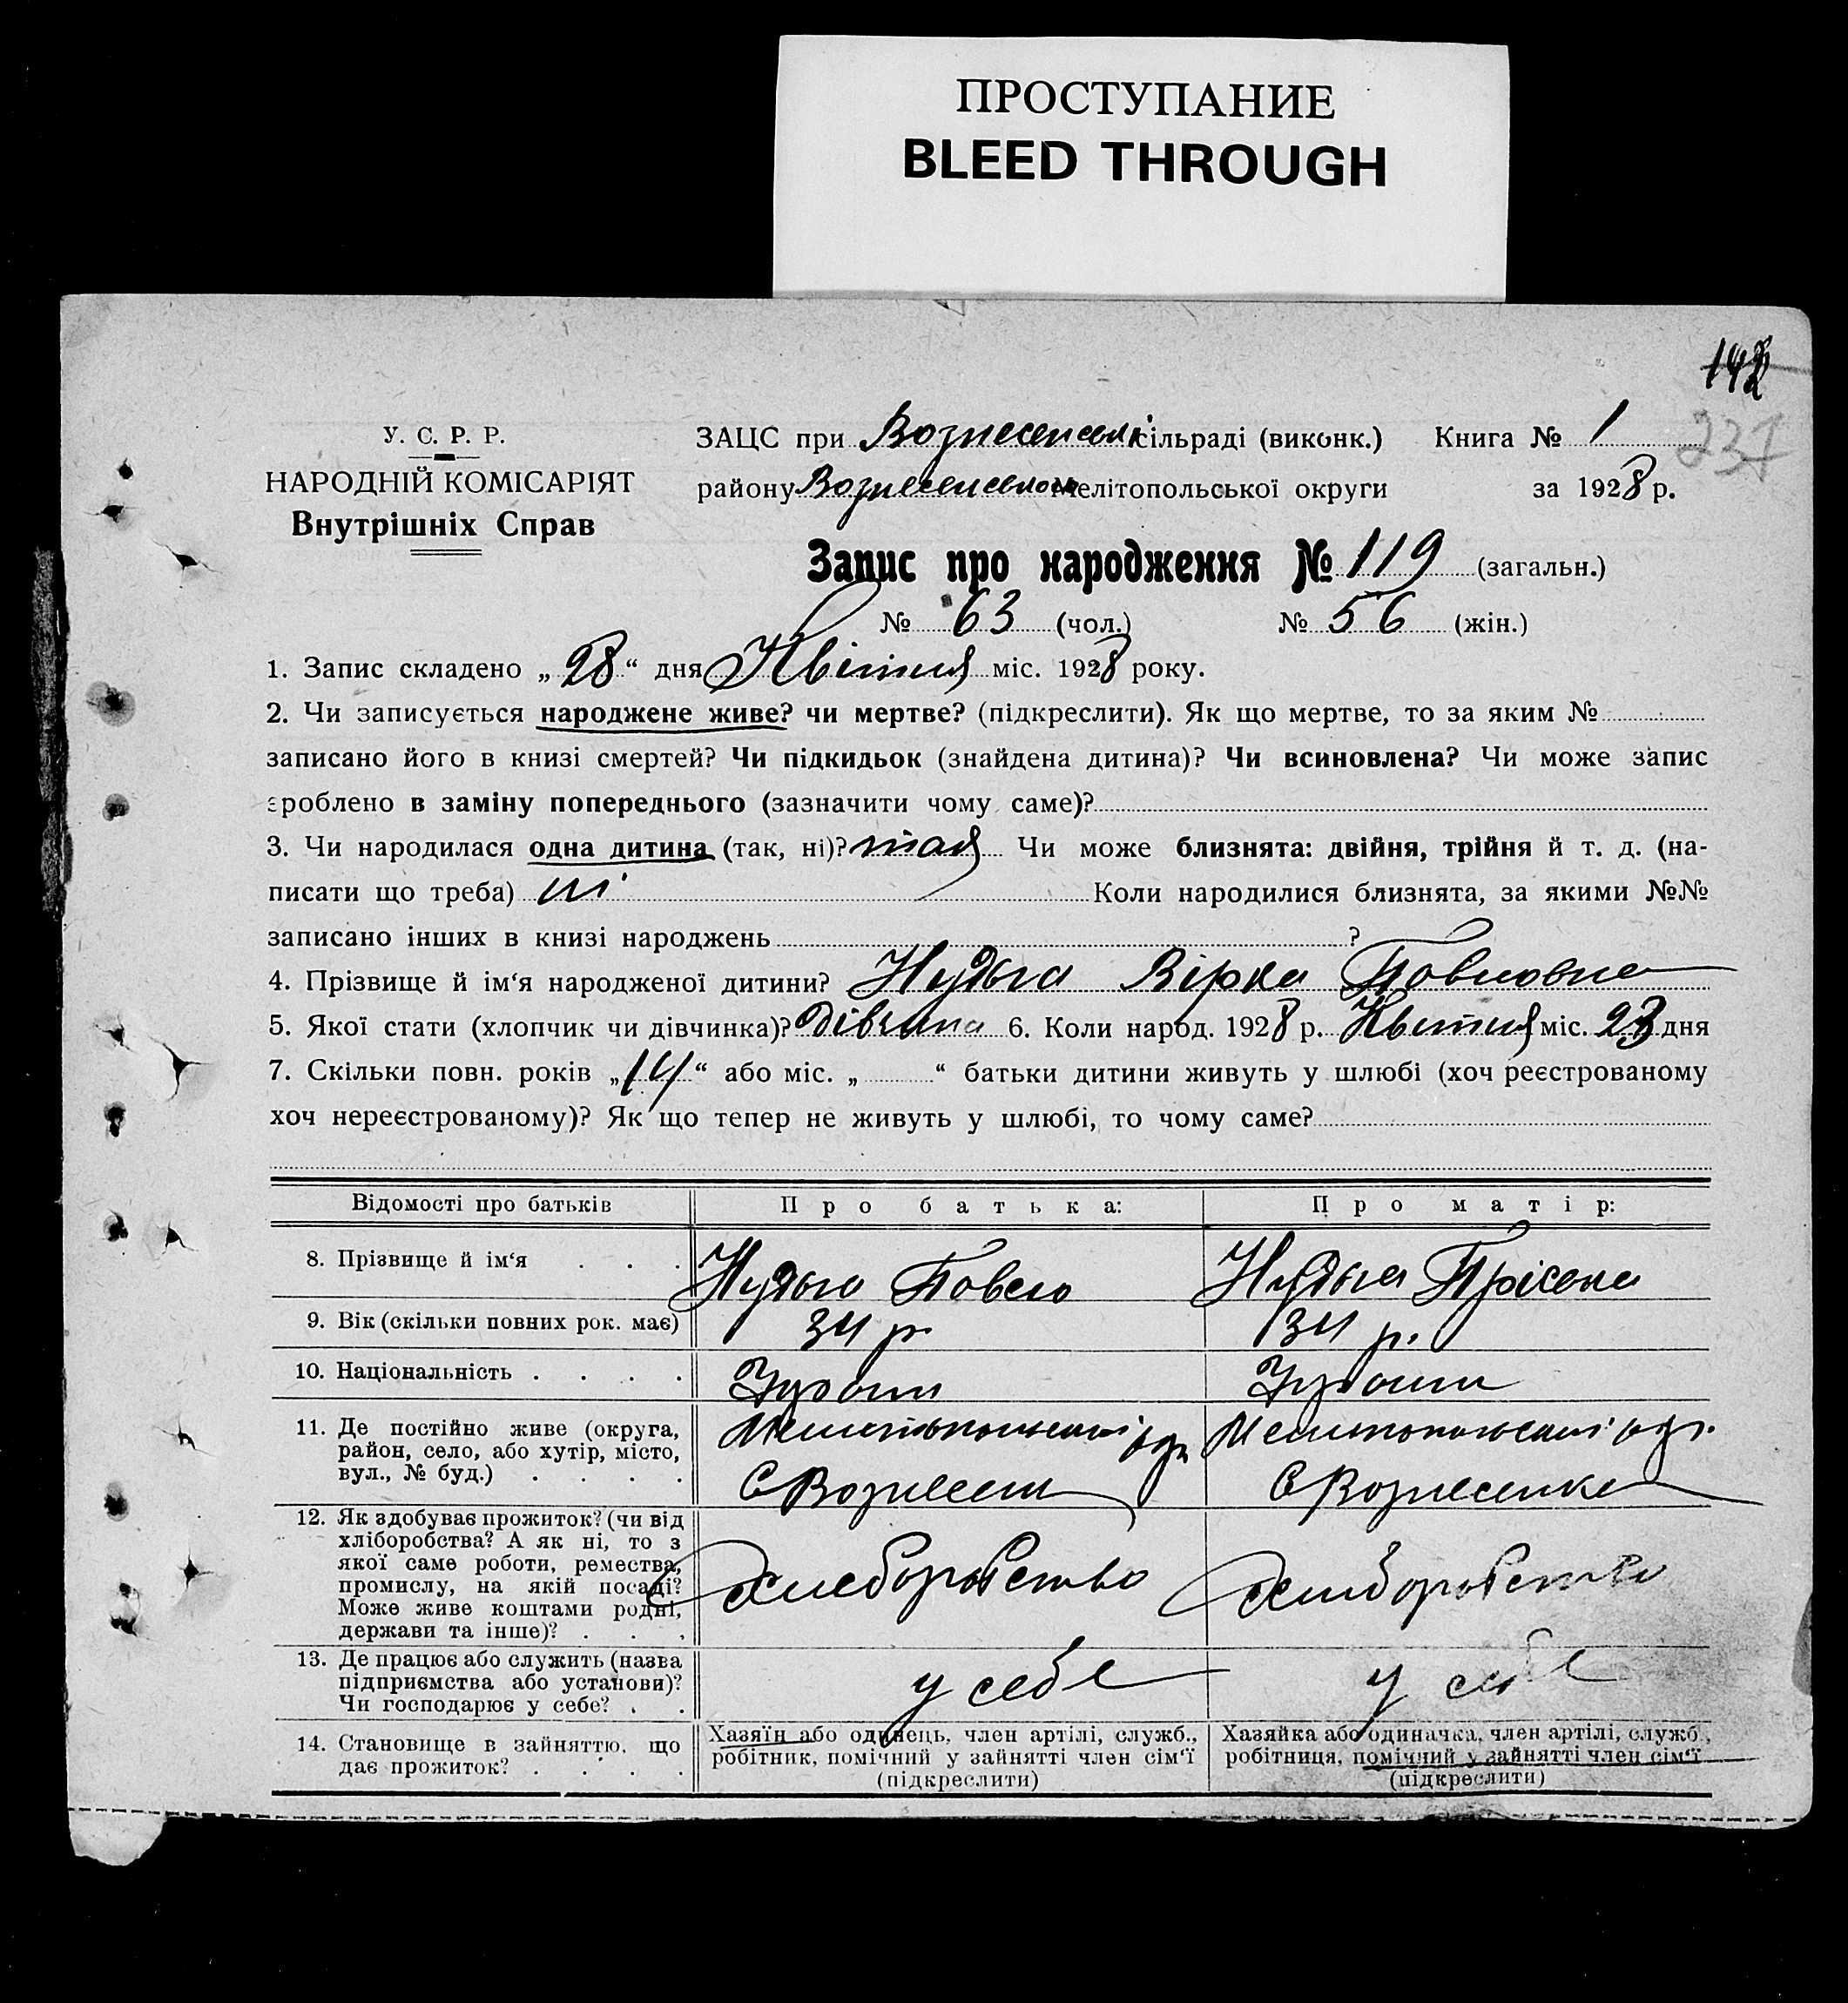 ПРОСТУПАНИЕ
BLEED THROUGH
142
237
У. С. Р. Р.
НАРОДНІЙ КОМІСАРІЯТ
Внутрішніх Справ
ЗАЦС при Вознесенськ сільраді (виконк.) Книга № 1
району Вознесенськом Мелітопольської округи за 1928 р.
Запис про народження № 119 (загальн.)
№ 63 (чол.) № 56 (жін.)
1. Запис складено „28“ дня Квітня міс. 1928 року.
2. Чи записується народжене живе? чи мертве? (підкреслити). Як що мертве, то за яким №
записано його в книзі смертей? Чи підкидьок (знайдена дитина)? Чи всиновлена? Чи може запис
зроблено в заміну попереднього (зазначити чому саме)?
3. Чи народилася одна дитина (так, ні)? так Чи може близнята: двійня, трійня й т. д. (на-
писати що треба) ні Коли народилися близнята, за якими №№
записано інших в книзі народжень ?
4. Прізвище й ім‘я народженої дитини? Нудьга Вірка Повловна
5. Якої стати (хлопчик чи дівчинка)? Дівчина 6. Коли народ. 1928 р. Квітня міс. 23 дня
7. Скільки повн. років „14“ або міс. „ “ батьки дитини живуть у шлюбі (хоч реєстрованому
хоч нереєстрованому)? Як що тепер не живуть у шлюбі, то чому саме?
Відомості про батьків Про батька: Про матір:
8. Прізвище й ім‘я . . . Нудьга Повело Нудьга Пріська
9. Вік (скільки повних рок. має) 34 р. 34 р.
10. Національність . . . .
11. Де постійно живе (округа,
район, село, або хутір, місто,
вул., № буд.) . . . .
Мелитопольської окр Мелитопольської окр.
С Вознесен С Вознесенка
12. Як здобуває прожиток? (чи від
хліборобства? А як ні, то з
якої саме роботи, ремества,
промислу, на якій посаді?
Може живе коштами родні,
держави та інше)? . . .
хлеборобство хлиборобство
13. Де працює або служить (назва
підприємства або установи)?
Чи господарює у себе? . .
у себе у себе
14. Становище в зайняттю, що
дає прожиток? . . . .
Хазяїн або одинець, член артілі, служб.,
робітник, помічний у зайнятті член сім‘ї
(підкреслити)
Хазяйка або одиначка, член артілі, служб.,
робітниця, помічний у зайнятті член сім‘ї
(підкреслити)